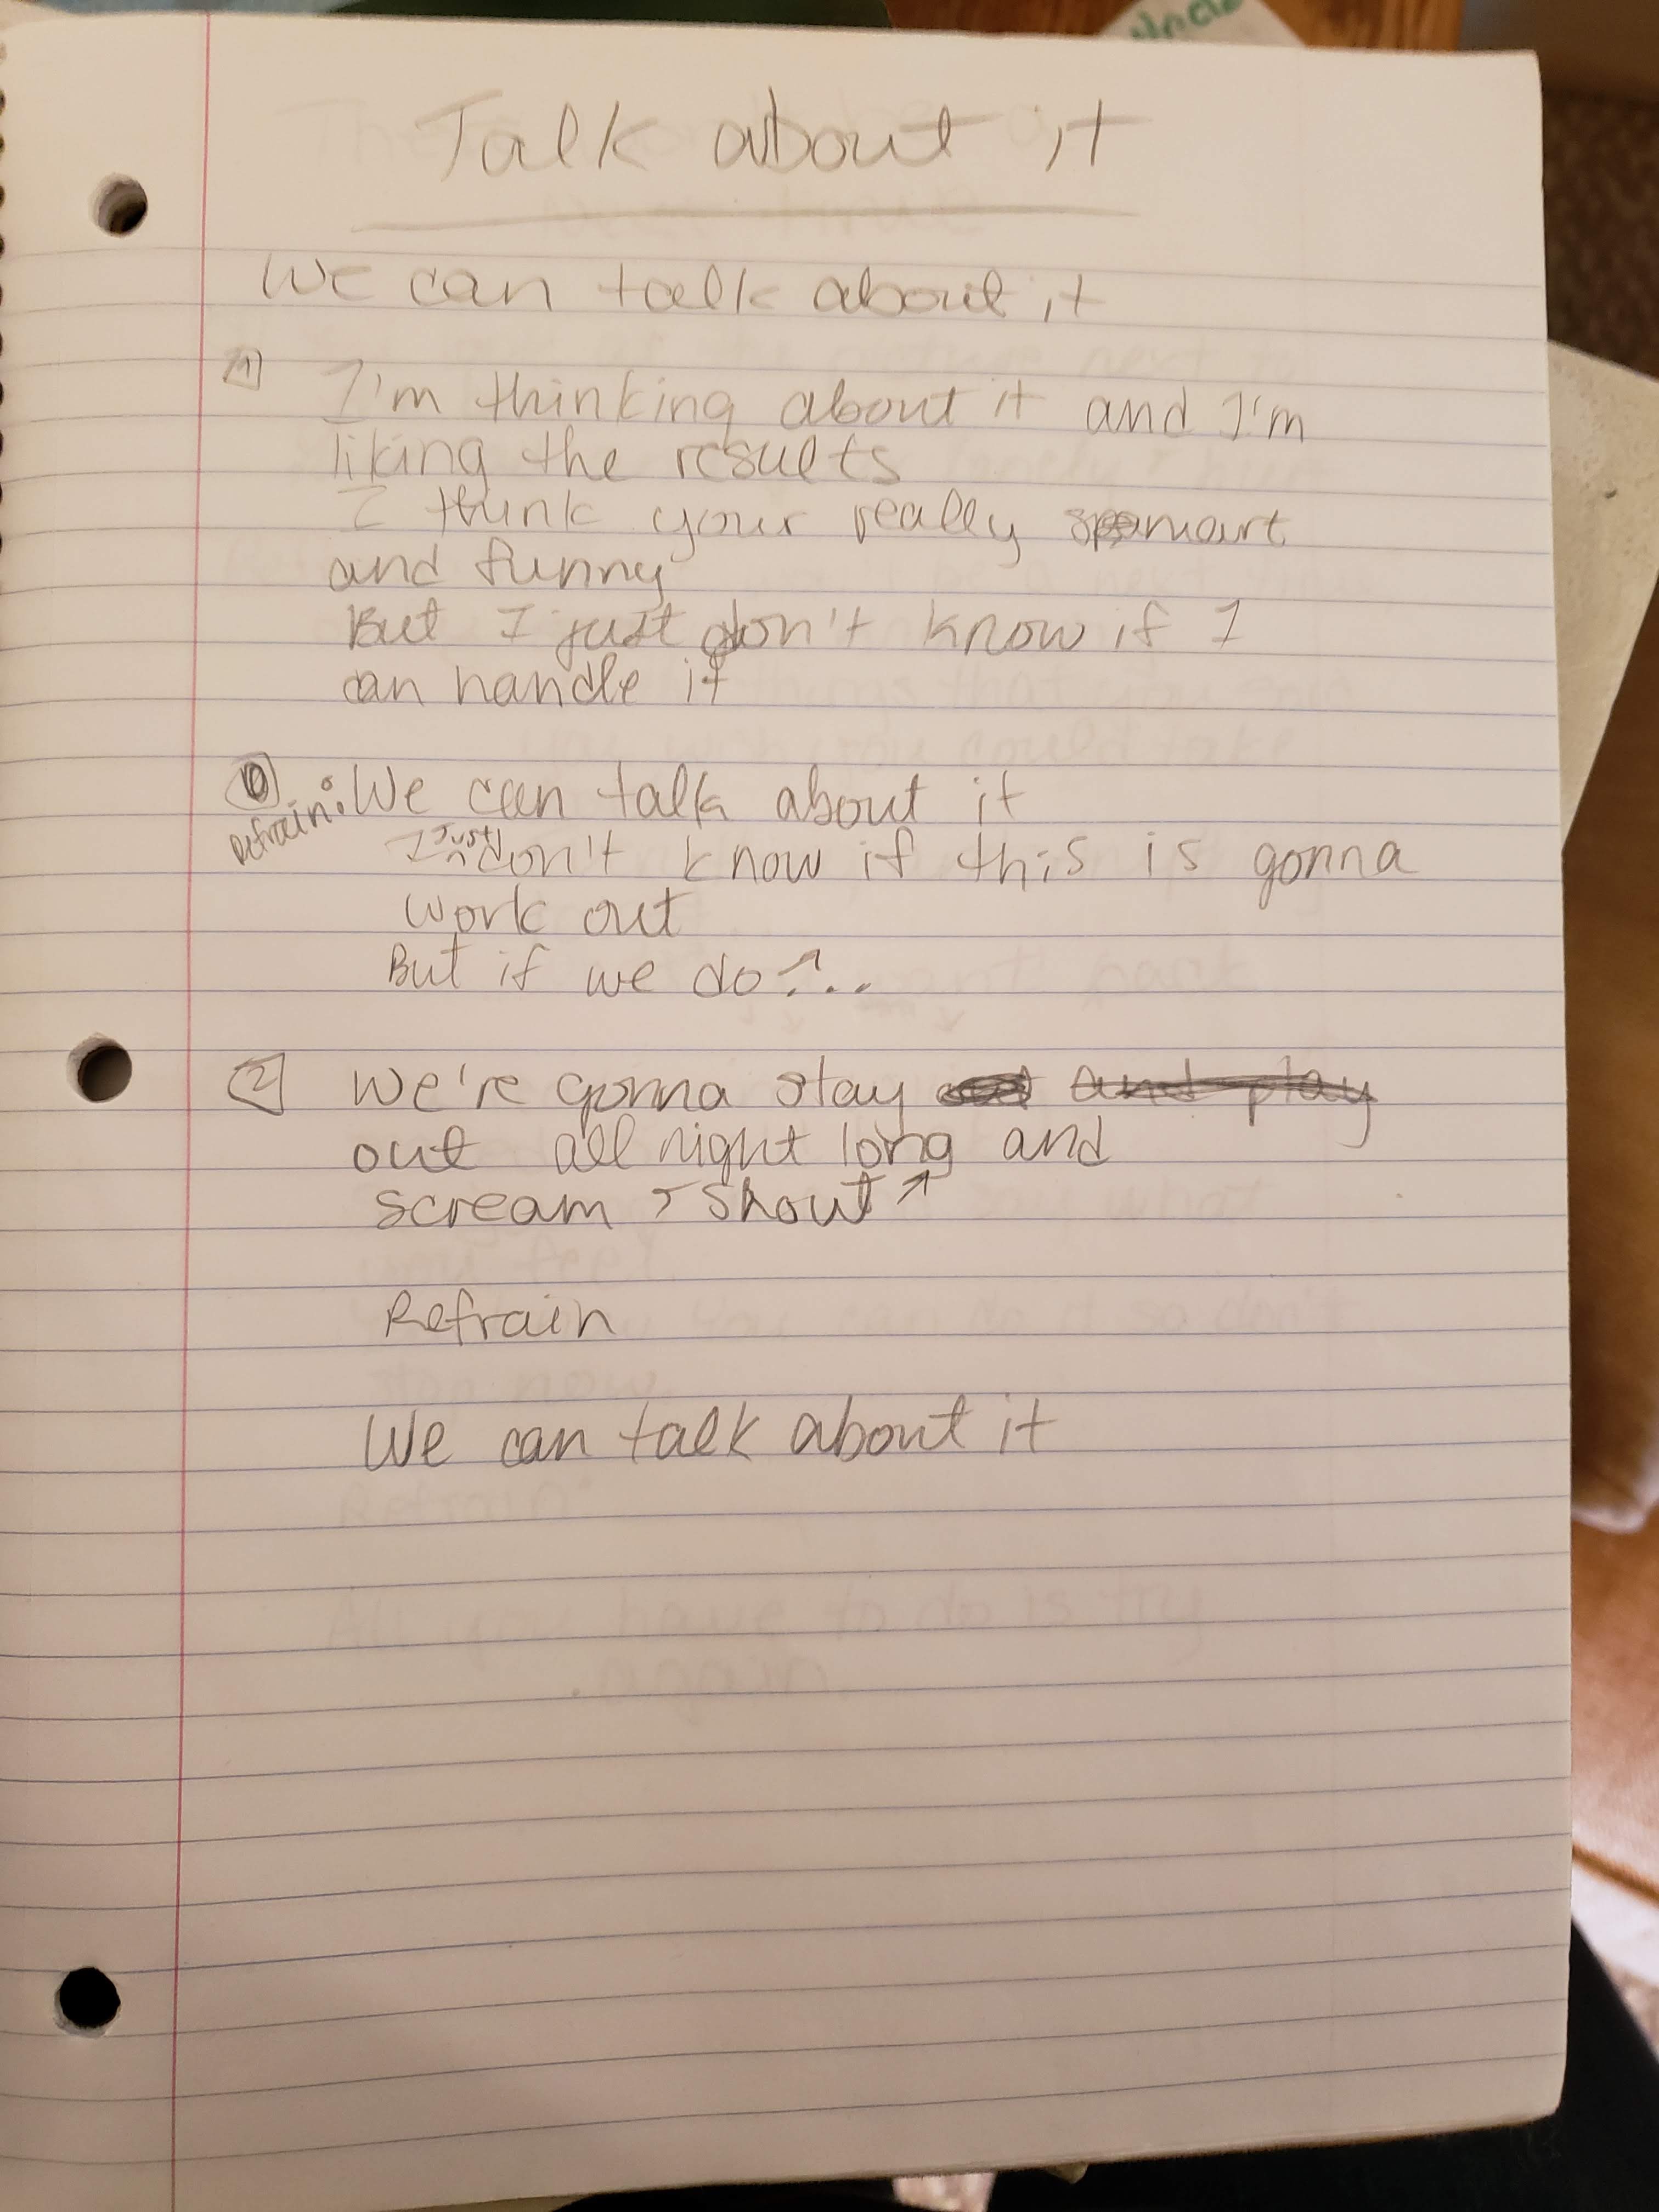 Talk about it
We can talk about it
1 I'm thinking about it and I'm
liking the results
I think your really smart
and funny
But I just don't know if I
can handle it
Refrain: We can talk about it
I just don't know if this is gonna
work out
But if we do ↗...
2 We're gonna stay and play
out all night long and
scream + shout ↗
Refrain
We can talk about it